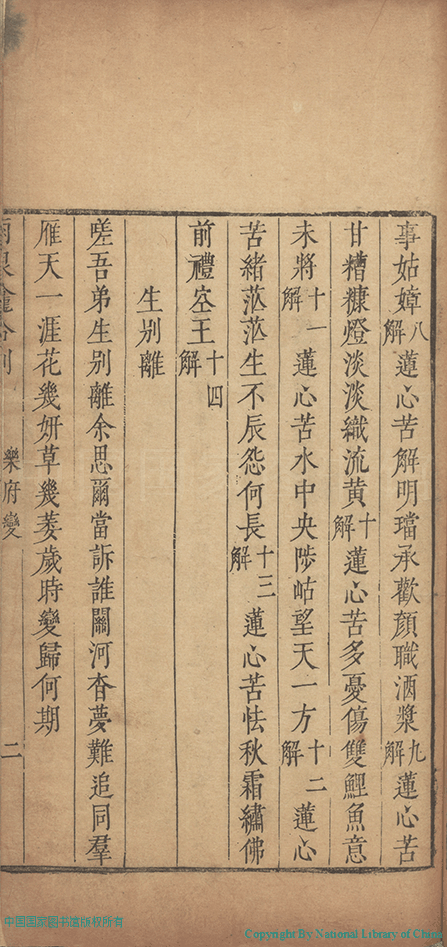 事姑嫜八解蓮心苦解明璫承歡顏職酒漿九解蓮心苦
甘糟糠燈淡淡織流黄十解蓮心苦多憂傷雙鯉魚意
未將十一解蓮心苦水中央陟岵望天一方十二解蓮心
苦緒茫茫生不辰怨何長十三解蓮心苦怯秋霜繡佛
前禮空王十四解
生别離
嗟吾弟生别離余思爾當訴誰關河杳夢難追同羣
雁天一涯花幾妍草幾萎歲時變歸何期
樂府變
二
中国国家图书馆版权所有
Copyright By National Library of China